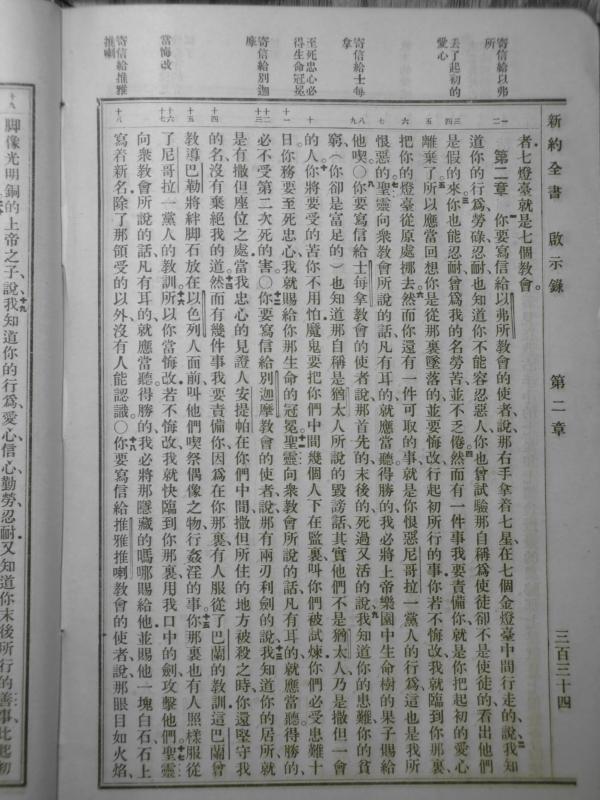 新約全書　啟示錄　第二章　三百三十四
寄信給以弗
所
丟了起初的
愛心
寄信給士每
拿
至死忠心必
得生命冠冕
寄信給別迦
摩
當悔改
寄信給推雅
推喇
者七燈臺就是七個教會。
第二章　你要寫信給以弗所教會的使者說那右手拿着七星在七個金燈臺中間行走的說我知
道你的行為勞碌忍耐也知道你不能容忍惡人你也曾試驗那自稱為使徒卻不是使徒的看出他們
是假的來你也能忍耐曾為我的名勞苦並不乏倦然而有一件事我要責備你就是你把起初的愛心
離棄了所以應當回想你是從那裏墜落的並要悔改行起初所行的事你若不悔改我就臨到你那裏
把你的燈臺從原處挪去然而你還有一件可取的事就是你恨惡尼哥拉一黨人的行為這也是我所
恨惡的聖靈向眾教會所說的話凡有耳的就應當聽得勝的我必將上帝樂園中生命樹的果子賜給
他喫○你要寫信給士每拿教會的使者說那首先的末後的死過又活的說我知道你的患難你的貧
窮（你卻是富足的）也知道那自稱是猶太人所說的毀謗話其實他們不是猶太人乃是撒但一會
的人你將要受的苦你不用怕魔鬼要把你們中間幾個人下在監裏叫你們被試煉你們必受患難十
日你務要至死忠心我就賜給你那生命的冠冕聖靈向眾教會所說的話凡有耳的就應當聽得勝的
必不受第二次死的害○你要寫信給別迦摩教會的使者說那有兩刃利劍的說我知道你的居所就
是有撒但座位之處當我忠心的見證人安提帕在你們中間撒但所住的地方被殺之時你還堅守我
的名沒有棄絕我的道然而有幾件事我要責備你因為在你那裏有人服從了巴蘭的教訓這巴蘭曾
教導巴勒將絆脚石放在以色列人面前叫他們喫祭偶像之物行姦淫的事你那裏也有人照樣服從
了尼哥拉一黨人的教訓所以你當悔改若不悔改我就快臨到你那裏用我口中的劍攻擊他們聖靈
向眾教會所說的話凡有耳的就應當聽得勝的我必將那隱藏的嗎哪賜給他並賜他一塊白石石上
寫着新名除了那領受的以外沒有人能認識○你要寫信給推雅推喇教會的使者說那眼目如火焰
脚像光明銅的上帝之子說我知道你的行為愛心信心勤勞忍耐又知道你末後所行的善事比起初